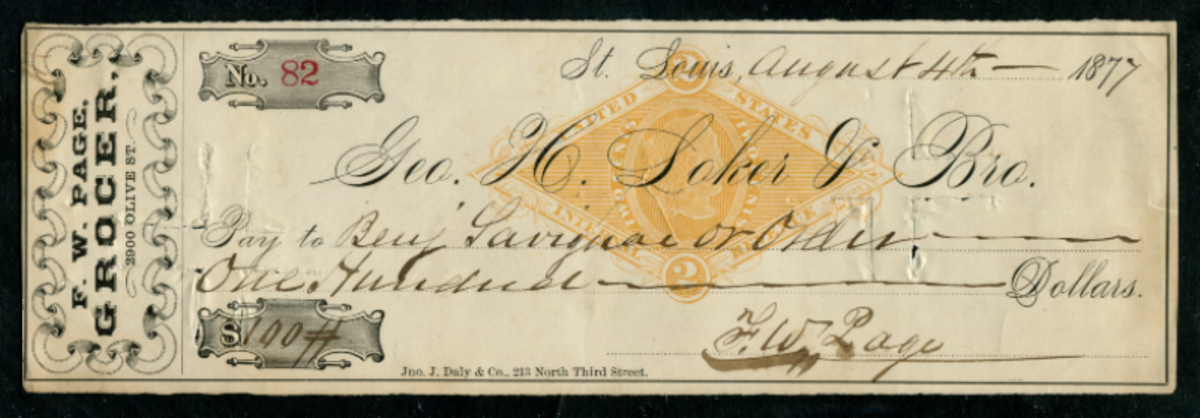 F. W. PAGE,
GROCER,
2900 OLIVE ST.
No. 82
St. Louis, August 4th 1877
2
UNITED STATES
Geo. H. Loker & Bro.
INTERNAL REVENUE
Pay to Benj Savignac or Order
2
One Hundred Dollars.
$100#
F. W. Page
Jno. J. Daly & Co., 213 North Third Street.